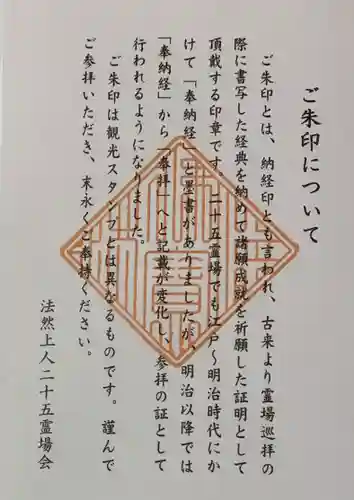 ご朱印について
ご朱印とは、納経印とも言われ、古来より霊場巡拝の
際に書写した経典を納めて諸願成就を祈願した証明として
頂戴する印章です。二十五霊場でも江戸〜明治時代にか
けて「奉納経」と墨書がありましたが、明治以降では
「奉納経」から「奉拝」へと記載が変化し、参拝の証として
行われるようになりました。
ご朱印は観光スタンプとは異なるものです。謹んで
ご参拝いただき、末永くご奉持ください。
法然上人二十五霊場会